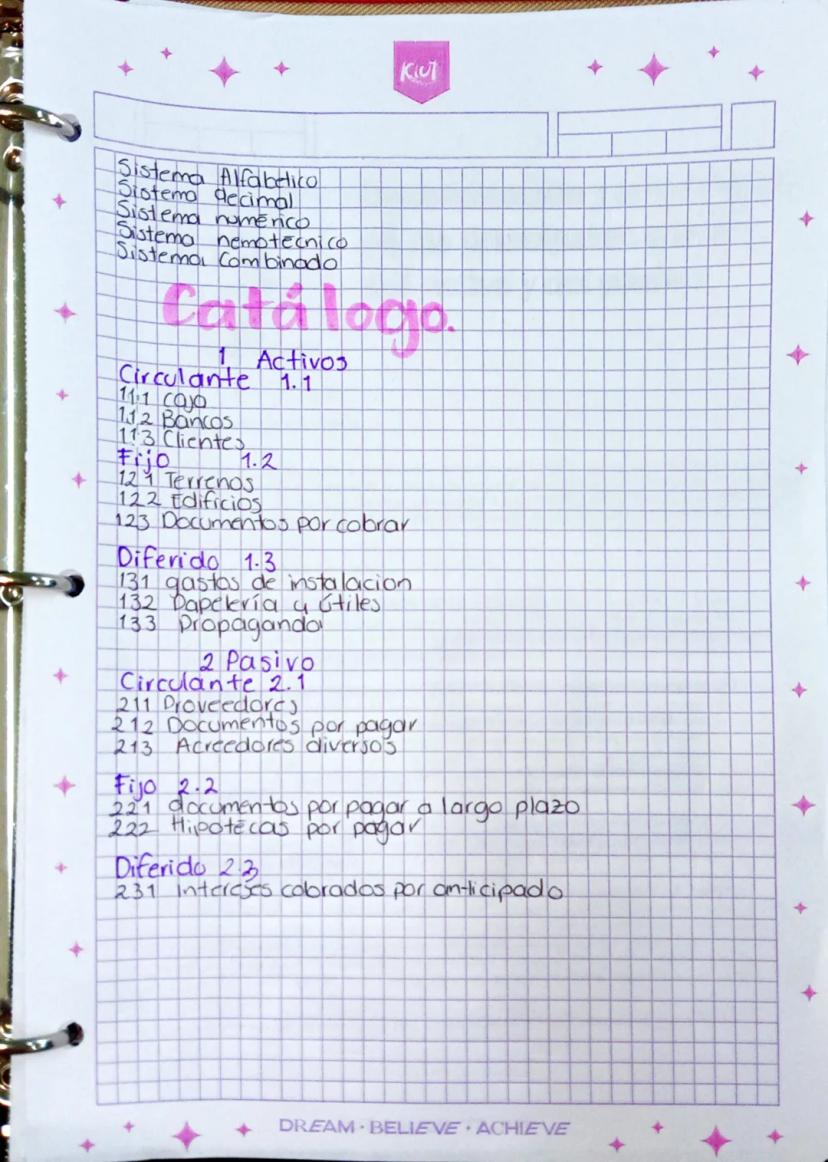 KIUT
Sistema Alfabetico
Sistema decimal
Sistema numérico
Sistema nemotecnico
Sistema Combinado
Catálogo.
1 Activos
Circulante 1.1
111 caja
112 Bancos
113 Clientes
Fijo 1.2
121 Terrenos
122 Edificios
123 Documentos por cobrar
Diferido 1.3
131 gastos de instalacion
132 Papelería y útiles
133 Propaganda
2 Pasivo
Circulante 2.1
211 Proveedores
212 Documentos por pagar
213 Acreedores diversos
Fijo 2.2
221 documentos por pagar a largo plazo
222 Hipotecas por pagar
Diferido 2.3
231 Intereses cobrados por anticipado
DREAM · BELIEVE · ACHIEVE